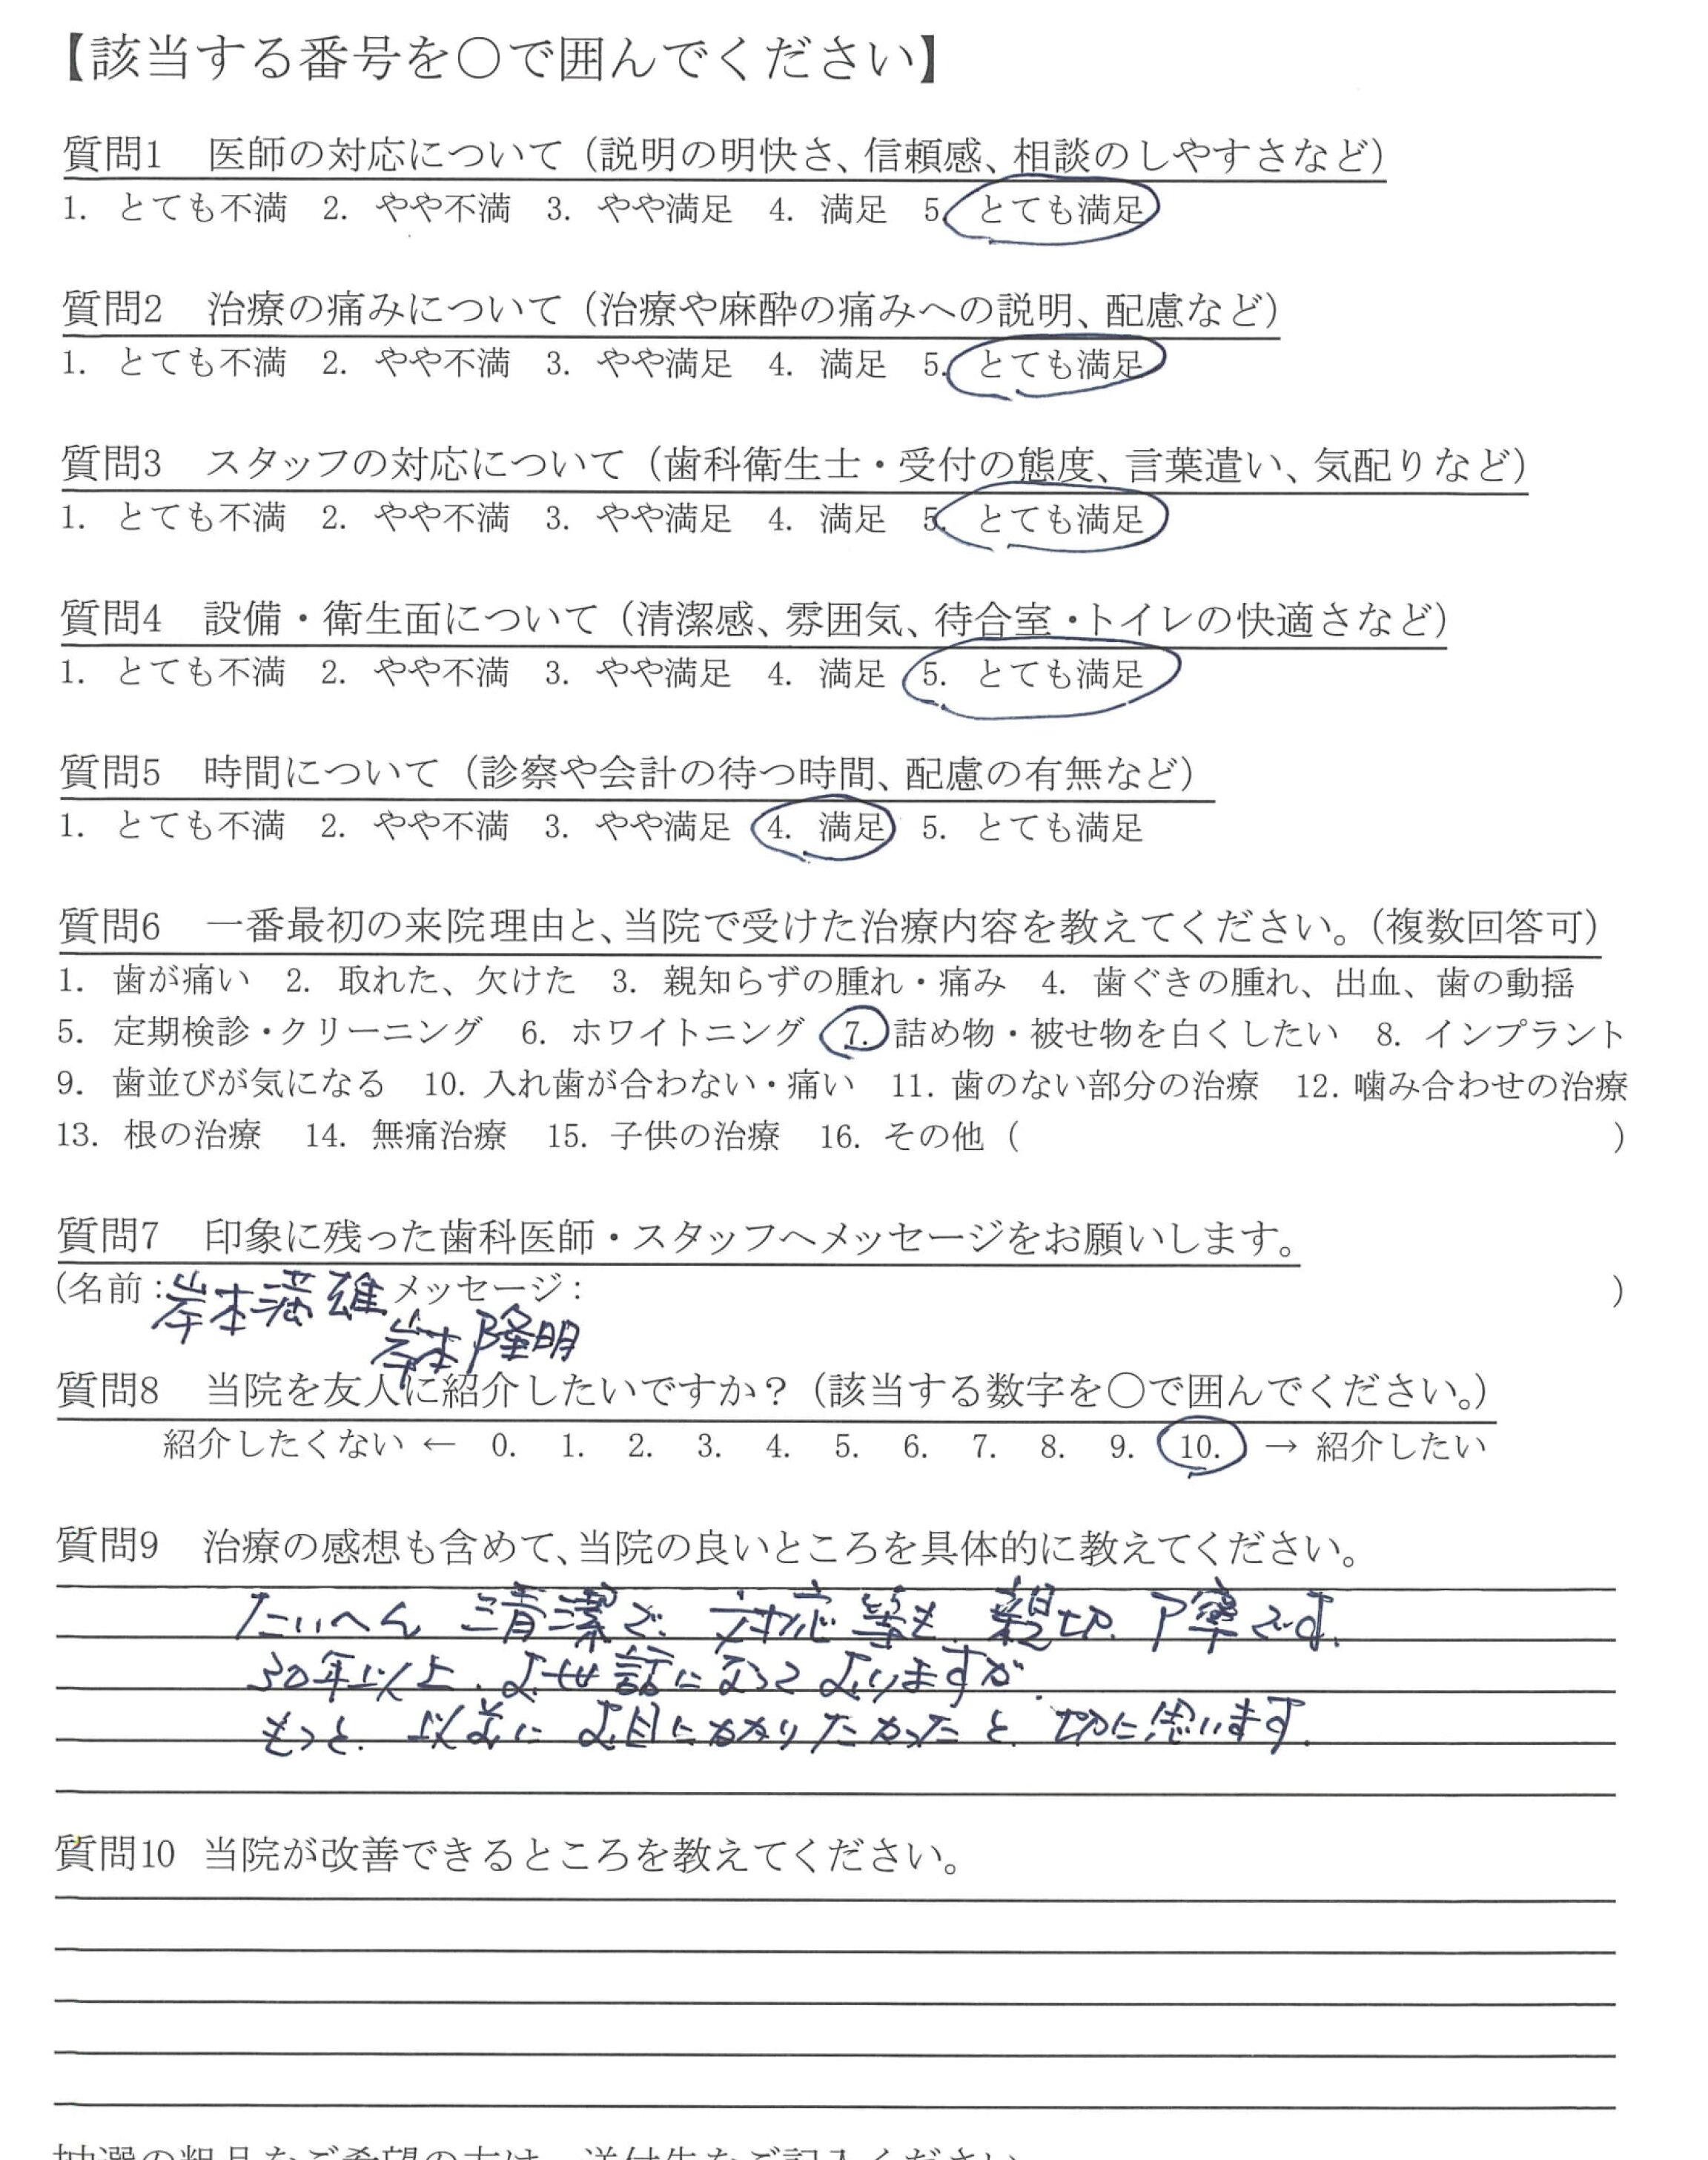 【該当する番号を○で囲んでください】
質問1　医師の対応について（説明の明快さ、信頼感、相談のしやすさなど）
1. とても不満　2. やや不満　3. やや満足　4. 満足　5. とても満足
質問2　治療の痛みについて（治療や麻酔の痛みへの説明、配慮など）
1. とても不満　2. やや不満　3. やや満足　4. 満足　5. とても満足
質問3　スタッフの対応について（歯科衛生士・受付の態度、言葉遣い、気配りなど）
1. とても不満　2. やや不満　3. やや満足　4. 満足　5. とても満足
質問4　設備・衛生面について（清潔感、雰囲気、待合室・トイレの快適さなど）
1. とても不満　2. やや不満　3. やや満足　4. 満足　5. とても満足
質問5　時間について（診察や会計の待つ時間、配慮の有無など）
1. とても不満　2. やや不満　3. やや満足　4. 満足　5. とても満足
質問6　一番最初の来院理由と、当院で受けた治療内容を教えてください。（複数回答可）
1. 歯が痛い　2. 取れた、欠けた　3. 親知らずの腫れ・痛み　4. 歯ぐきの腫れ、出血、歯の動揺
5. 定期検診・クリーニング　6. ホワイトニング　7. 詰め物・被せ物を白くしたい　8. インプラント
9. 歯並びが気になる　10. 入れ歯が合わない・痛い　11. 歯のない部分の治療　12. 噛み合わせの治療
13. 根の治療　14. 無痛治療　15. 子供の治療　16. その他（　）
質問7　印象に残った歯科医師・スタッフへメッセージをお願いします。
(名前：岸本満雄 メッセージ：　)
岸本隆明
質問8　当院を友人に紹介したいですか？（該当する数字を○で囲んでください。）
紹介したくない ← 0. 1. 2. 3. 4. 5. 6. 7. 8. 9. 10. → 紹介したい
質問9　治療の感想も含めて、当院の良いところを具体的に教えてください。
たいへん 清潔で、対応等も、親切、丁寧です。
30年以上、お世話になっておりますが、
もっと、以前に お目にかかりたかったと、切に思います。
質問10　当院が改善できるところを教えてください。
抽選の粗品をご希望の方は、送付先をご記入ください